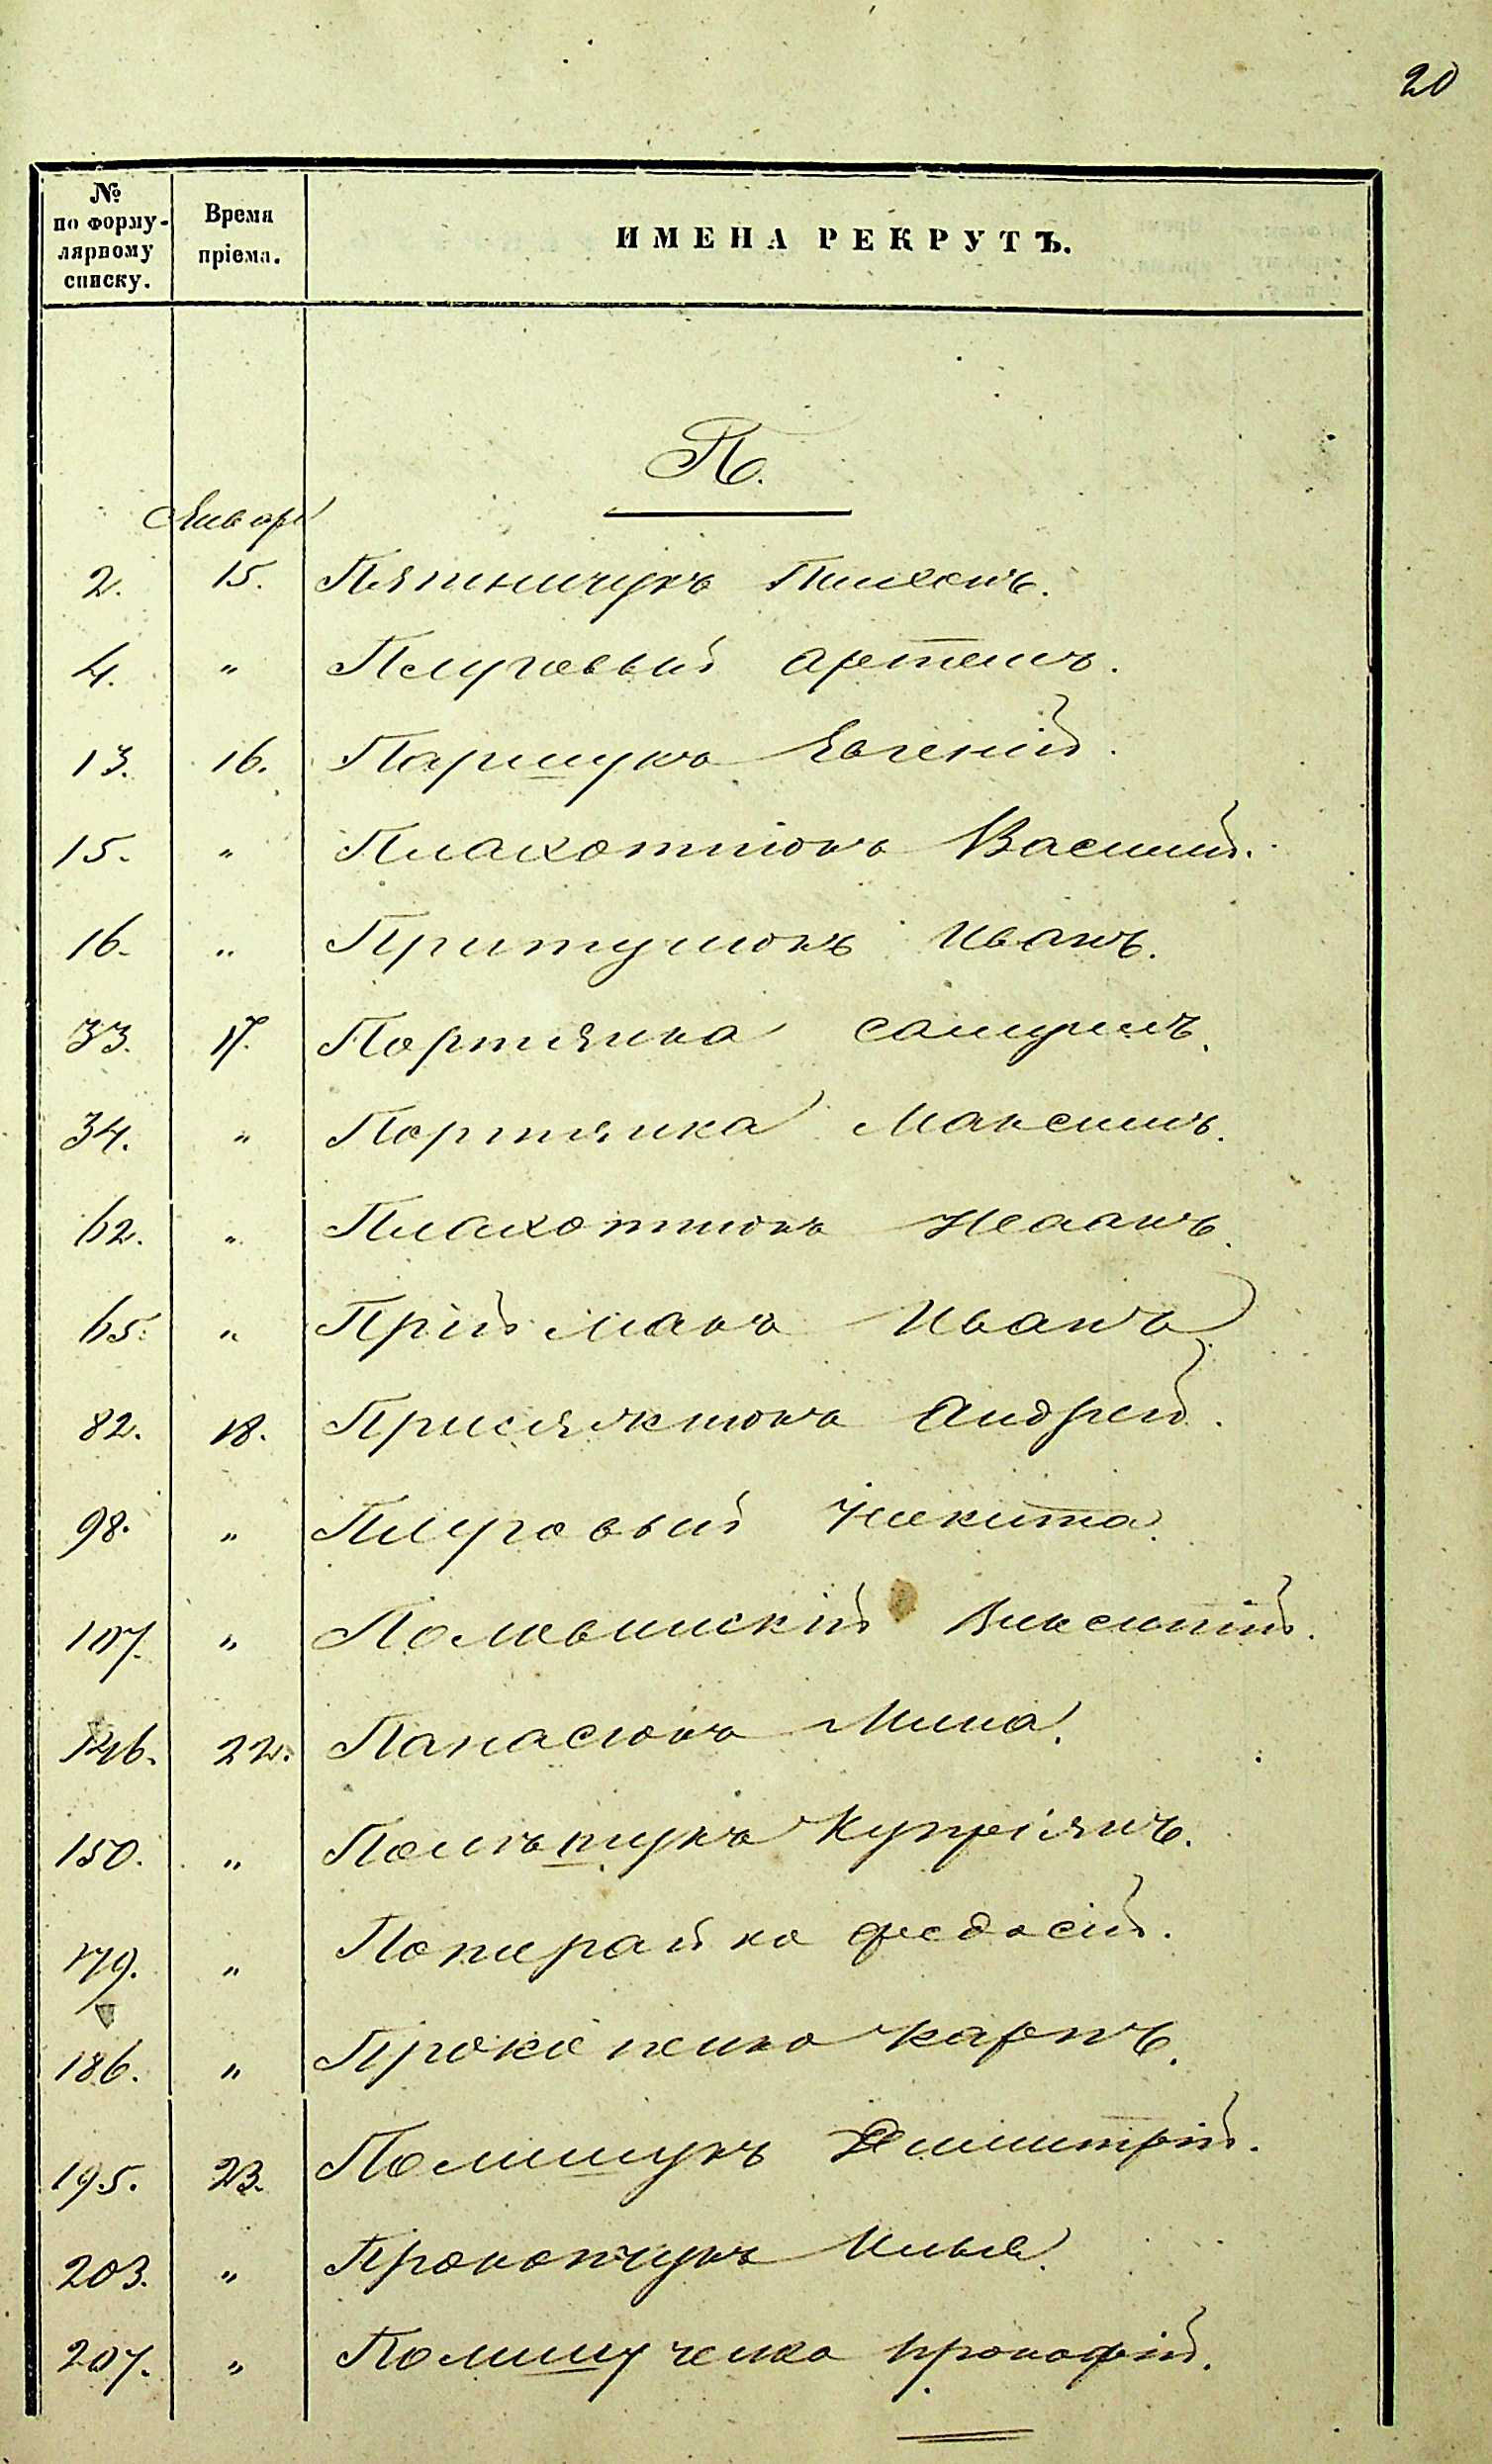 20
№ по форму-лярному списку. Время пріема. ИМЕНА РЕКРУТЪ.
П.
Январь
2. 15. Пятничукъ Тихонъ.
4. " Плуговый Артемъ.
13. 16. Паршукъ Евгеній.
15. " Плахотнюкъ Василій.
16. " Притулюкъ Иванъ.
33. 17. Портянка Самуилъ.
34. " Портянка Максимъ.
62. " Плахотнюкъ Исаакъ.
65. " Пріймакъ Иванъ.
82. 18. Присяжнюкъ Андрей.
98. " Плуговый Никита.
107. " Полевинскій Викентій.
146. 22. Панасюкъ Мина.
150. " Полѣщукъ Купріянъ.
179. " Попирайко Федосій.
186. " Прокопенко Карпъ.
195. 23. Полищукъ Димитрій.
203. " Прокопчукъ Илья.
207. " Полищученко Прокофій.